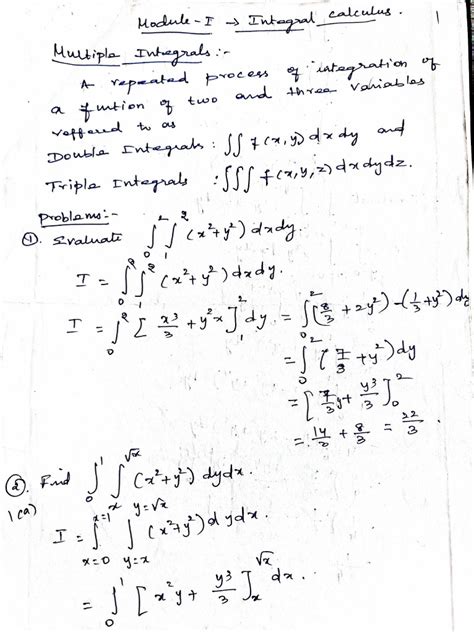 Module-I → Integral calculus.
1
Multiple Integrals:-
A repeated process of integration of
a funtion of two and three variables
reffered to as
Double Integrals : ∬ f(x,y) dx dy and
Triple Integrals : ∭ f(x,y,z) dx dy dz.
Problems:-
①. Evaluate ∫₀² ∫₁² (x²+y²) dx dy.
I = ∫₀² ∫₁² (x²+y²) dx dy.
I = ∫₀² [x³/3 + y²x]₁² dy = ∫₀² (8/3 + 2y²) - (1/3 + y²) dy
= ∫₀² (7/3 + y²) dy
= [7/3 y + y³/3]₀²
= 14/3 + 8/3 = 22/3.
②. Find ∫₀¹ ∫ₓ^√x (x²+y²) dy dx.
1(a)
I = ∫_{x=0}^{x=1} ∫_{y=x}^{y=√x} (x²+y²) dy dx.
= ∫₀¹ [x²y + y³/3]ₓ^√x dx.